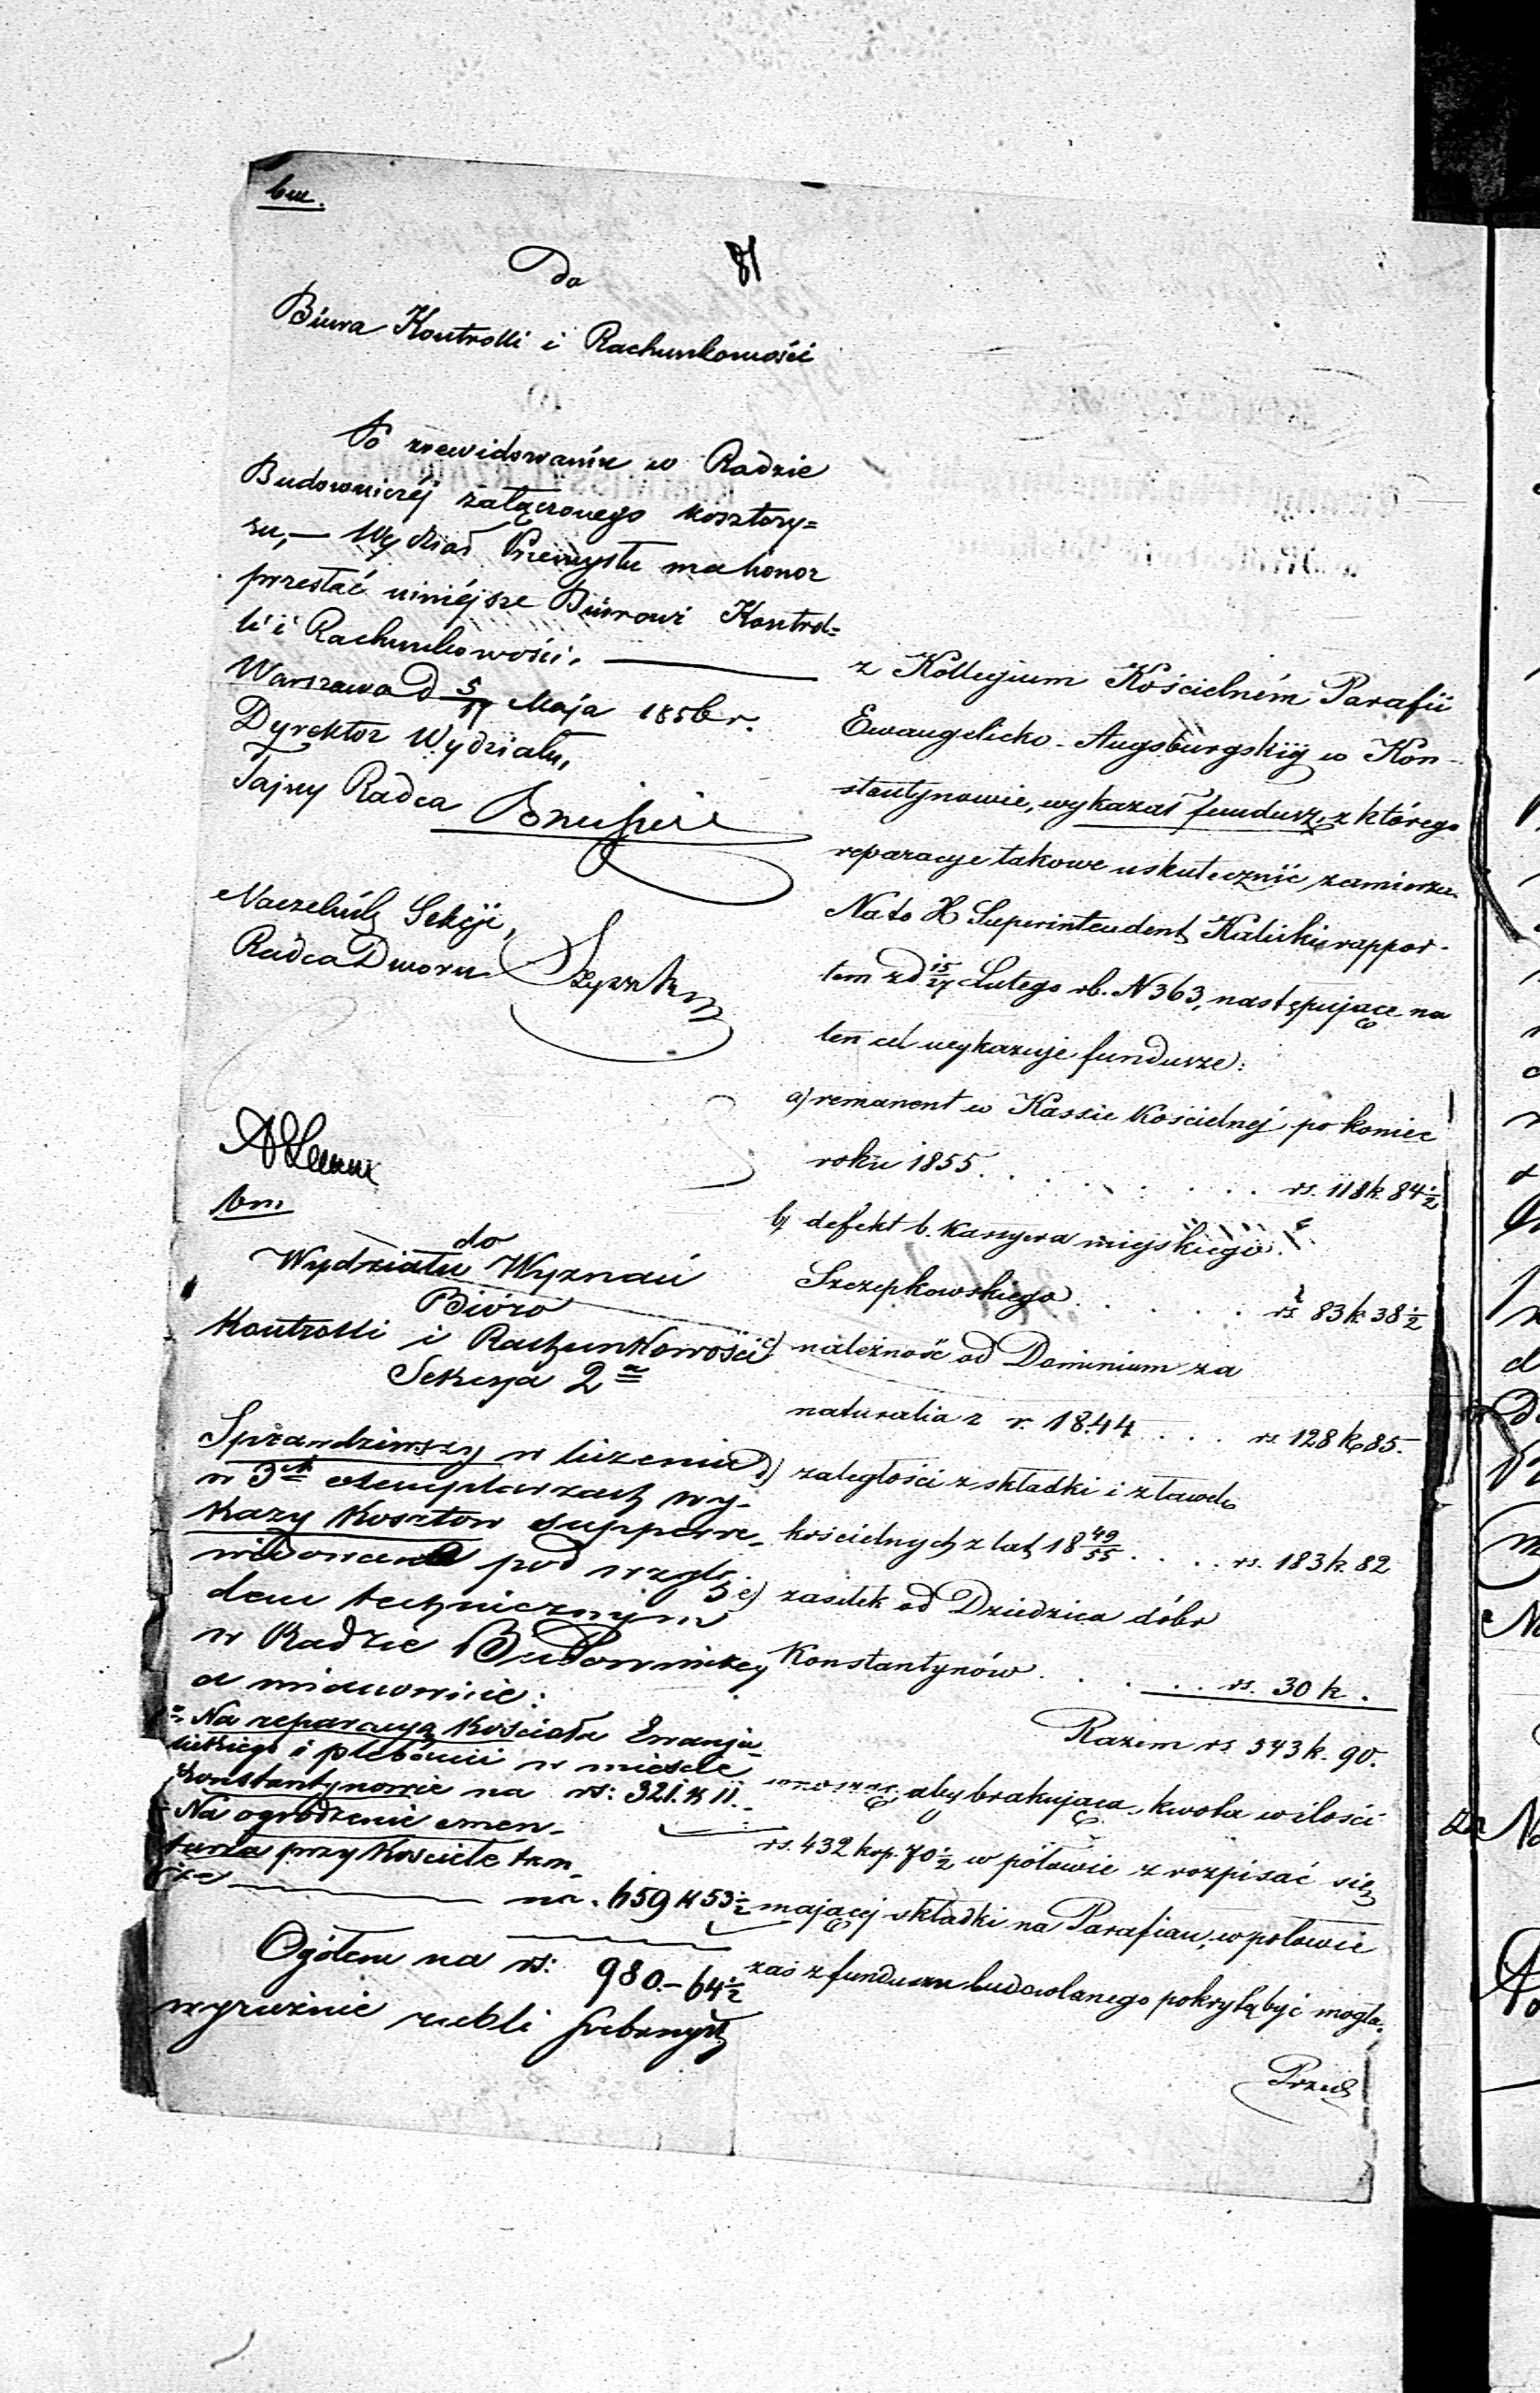 bm.
81
Do
Biura Kontrolli i Rachunkowości
Po zrewidowaniu w Radzie
Budowniczéj załączonego kosztory=
su,— Wydział Przemysłu ma honor
przesłać niniéjsze Biurowi Kontrol=
li i Rachunkowości.
Warszawa d 5/17 Maja 1856 r.
Dyrektor Wydziału,
Tajny Radca
Naczelnik Sekcji,
Radca Dworu
bm
do
Wydziału Wyznań
Bióro
Kontrolli i Rachunkowości
Sekcya 2a
Sprawdziwszy w liczeniu
w 3ch exemplarzach wy-
kazy kosztów superre-
widowane pod wzglę-
dem technicznym
w Radzie Budowniczey
a mianowicie:
Na reparacyą Kościoła Ewanje-
lickiego i plebanii w mieście
Konstantynowie na rs: 321. k 11.
Na ogrodzenie cmen-
tarza przy Kościele tam
że na . 659 k 53 1/2
Ogółem na rs: 980.- 64 1/2
wyraźnie rubli srebrnych
z Kollegium Kościelném Parafii
Ewangelicko-Augsburgskiéj w Kon-
stantynowie, wykazał fundusz, z którego
reparacye takowe uskutecznić zamierza.
Na to X Superintendent Kaliski rappor-
tem z d 15/27 Lutego rb. N 363, następujące na
ten cel wykazuje fundusze:
a) remanent w Kassie Kościelnéj po koniec
roku 1855. . . . . . . . . rs. 118 k. 84 1/2
b) defekt b. Kassyera miejskiego
Szczepkowskiego . . . . . rs 83 k 38 1/2
c) należność od Dominium za
naturalia z r. 1844 . . . . rs. 128 k 85.
d) zaległości z składki i z ławek
kościelnych z lat 18 49/55 . . . . rs. 183 k. 82
e) zasiłek od Dziedzica dóbr
Konstantynów . . . . rs. 30 k .
Razem rs. 543 k. 90.
wnosząc, aby brakująca, kwota w ilości
rs. 432 kop. 70 1/2 w połowie z rozpisać się
mającéj składki na Parafian, w połowie
zaś z funduszu budowlanego pokrytą być mogła.
Przed